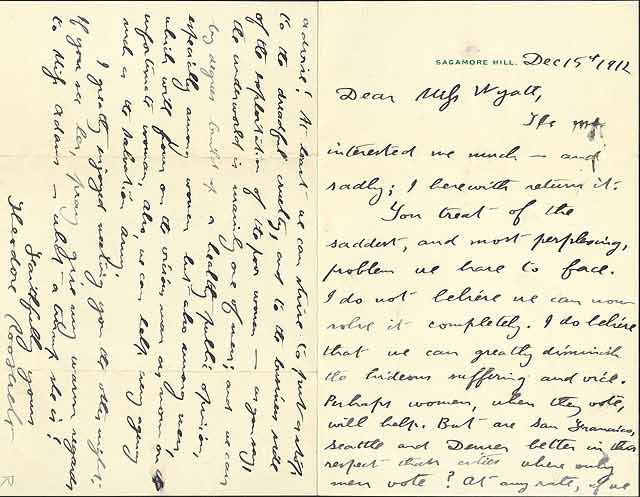 SAGAMORE HILL. Dec 15th 1912
Dear Miss Wyatt,
The ms.
interested me much — and
sadly; I herewith return it.
You treat of the
saddest, and most perplexing,
problem we have to face.
I do not believe we can now
solve it completely. I do believe
that we can greatly diminish
the hideous suffering and evil.
Perhaps women, when they vote,
will help. But are San Francisco,
Seattle and Denver better in this
respect than cities where only
men vote? At any rate, if we
At least we can strive to put a stop
to the dreadful cruelty, and to the business side
of the exploitation of the poor women — as you say,
the underworld is mainly one of men; and we can
by degrees build up a healthy public opinion,
especially among women but also among men,
which will frown on the vicious man as on
unfortunate women; also, we can help every agency
such as the Salvation Army.
I greatly enjoyed meeting you the other night;
If you see her, pray give my warm regards
to Miss Adams — what a trump she is!
Faithfully yours
Theodore Roosevelt
R